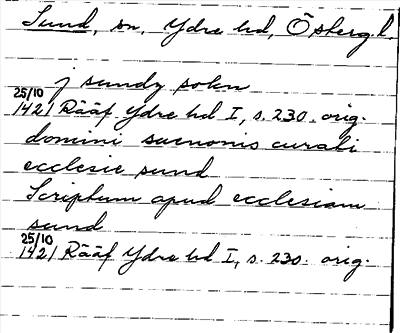 Sund, sn, Ydre hd, Österg.l.
j sundz sokn
25/10
1421 Rääf Ydre hd I, s. 230. orig.
domini suenonis curati
ecclesie sund
Scriptum apud ecclesiam
sund
25/10
1421 Rääf Ydre hd I, s. 230. orig.